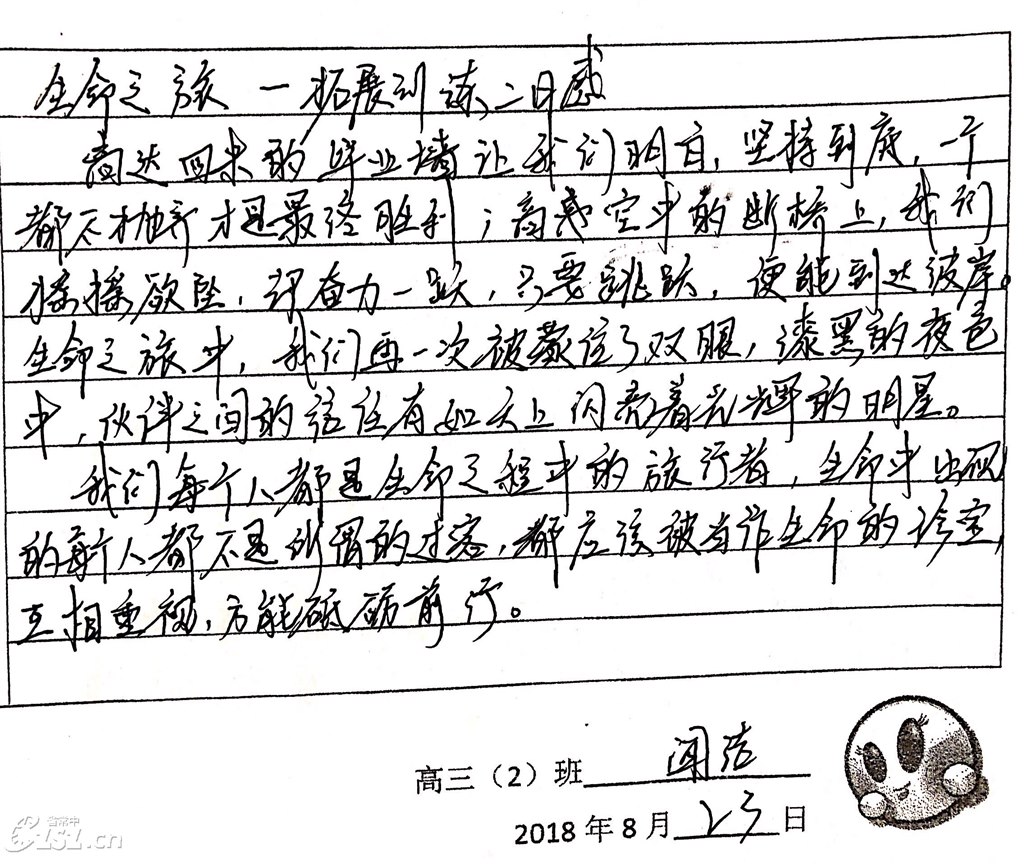 生命之旅 一拓展训练二日感
高达四米的毕业墙让我们明白,坚持到底,一个
都不抛弃才是最终胜利;高悬空中的断桥上,我们
摇摇欲坠,评奋力一跃,只要跳跃,便能到达彼岸。
生命之旅中,我们再一次被蒙住了双眼,漆黑的夜色
中,伙伴之间的信任有如天上闪亮着光辉的明星。
我们每个人都是生命之程中的旅行者,生命中出现
的每个人都不是所谓的过客,都应该被当作生命的珍宝,
互相重视,方能砥砺前行。
高三(2)班 闻洁
2018年8月23日
省常中
CZ1S1.cn